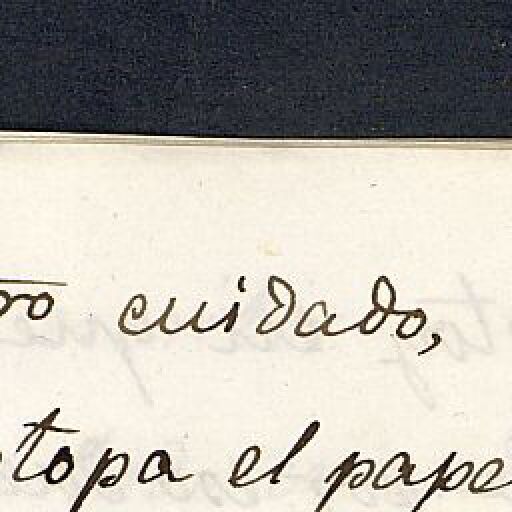 cuidado,
topa el pape